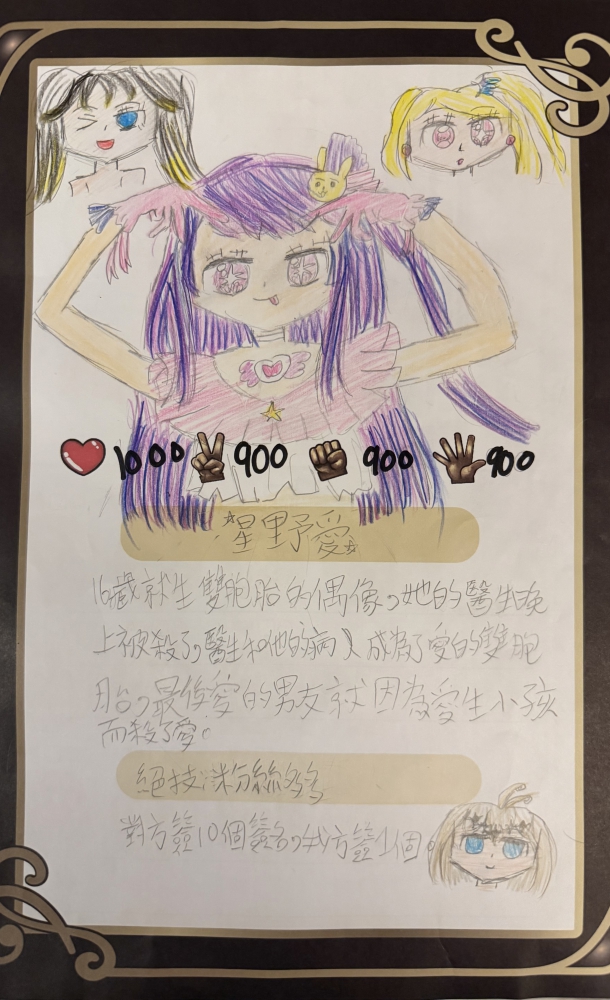 1000 900 900 900
星野愛
16歲就生雙胞胎的偶像，她的醫生晚
上被殺了，醫生和他的病人成為了愛的雙胞
胎，最後愛的男友就因為愛生小孩
而殺了愛。
絕技：粉絲多多
對方簽10個簽名，我方簽1個。